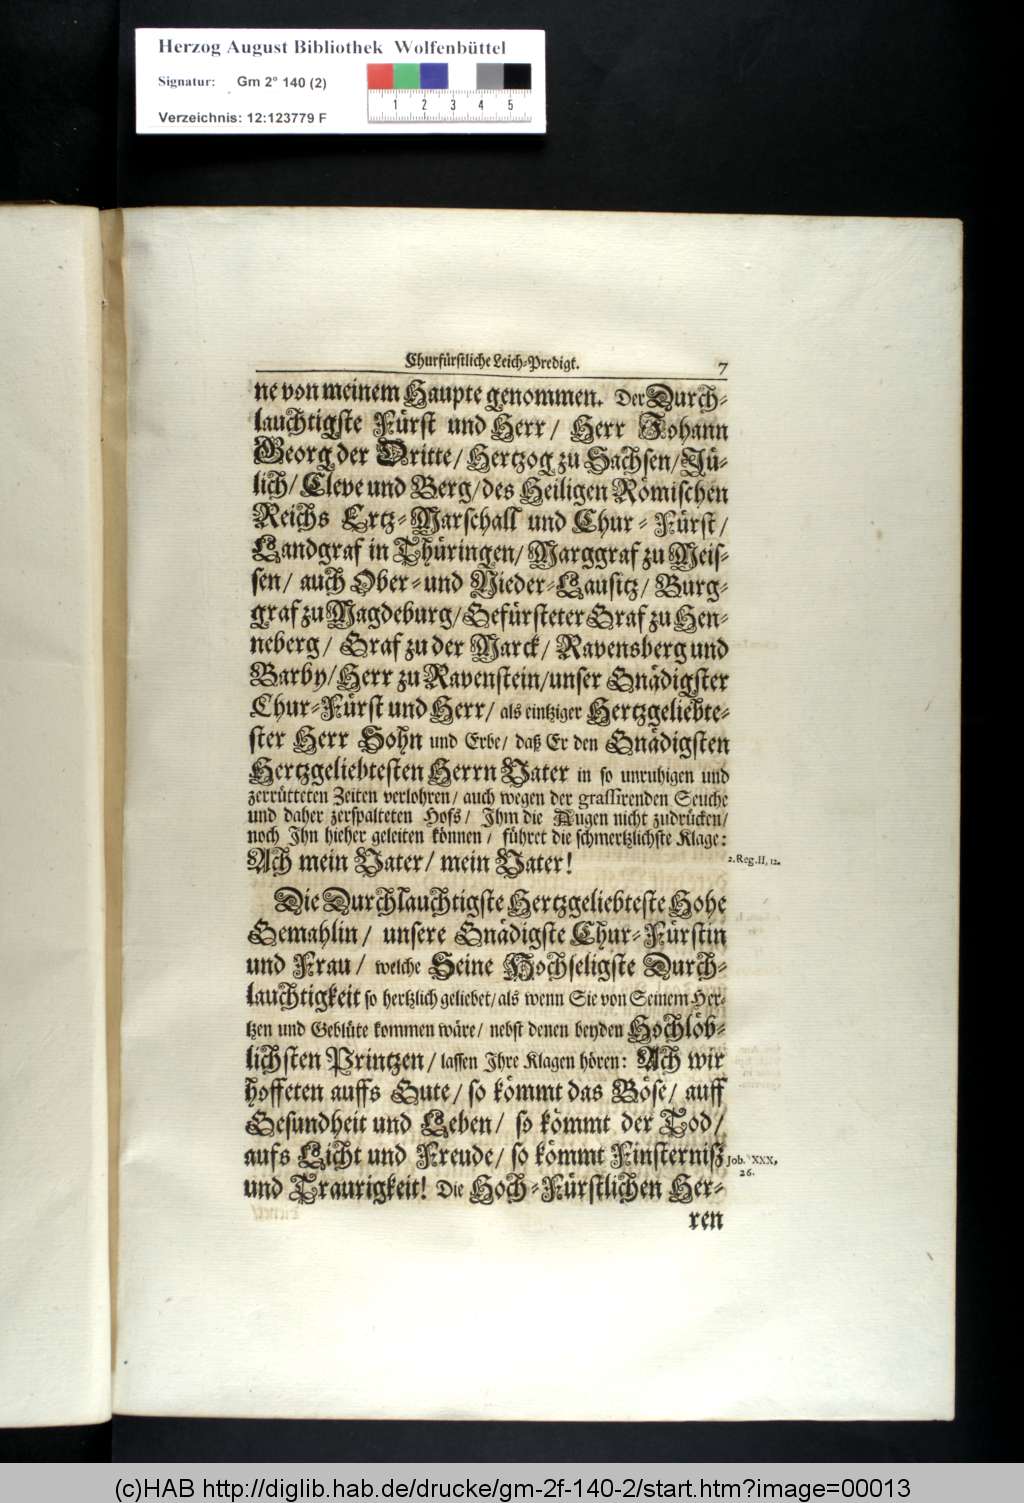 Herzog August Bibliothek Wolfenbüttel
Signatur: Gm 2° 140 (2)
1 2 3 4 5
Verzeichnis: 12:123779 F
Churfürstliche Leich-Predigt. 7
ne von meinem Haupte genommen. Der Durch-
lauchtigste Fürst und Herr/ Herr Johann
Georg der Dritte/ Hertzog zu Sachsen/ Jü-
lich/ Cleve und Berg/ des Heiligen Römischen
Reichs Ertz-Marschall und Chur-Fürst/
Landgraf in Thüringen/ Marggraf zu Meis-
sen/ auch Ober- und Nieder-Lausitz/ Burg-
graf zu Magdeburg/ Gefürsteter Graf zu Hen-
neberg/ Graf zu der Marck/ Ravensberg und
Barby/ Herr zu Ravenstein/ unser Gnädigster
Chur-Fürst und Herr/ als eintziger Hertzgeliebte-
ster Herr Sohn und Erbe/ daß Er den Gnädigsten
Hertzgeliebtesten Herrn Vater in so unruhigen und
zerrütteten Zeiten verlohren/ auch wegen der grassirenden Seuche
und daher zerspalteten Hofs/ Ihm die Augen nicht zudrücken/
noch Ihn hieher geleiten können/ führet die schmertzlichste Klage:
Ach mein Vater/ mein Vater! 2. Reg. II, 12.
Die Durchlauchtigste Hertzgeliebteste Hohe
Gemahlin/ unsere Gnädigste Chur-Fürstin
und Frau/ welche Seine Hochseligste Durch-
lauchtigkeit so hertzlich geliebet/ als wenn Sie von Seinem Her-
tzen und Geblüte kommen wäre/ nebst denen beyden Hochlöb-
lichsten Printzen/ lassen Ihre Klagen hören: Ach wir
hoffeten auffs Gute/ so kömmt das Böse/ auff
Gesundheit und Leben/ so kömmt der Tod/
aufs Licht und Freude/ so kömmt Finsterniß Job. XXX,
26.
und Traurigkeit! Die Hoch-Fürstlichen Her-
ren
(c)HAB http://diglib.hab.de/drucke/gm-2f-140-2/start.htm?image=00013